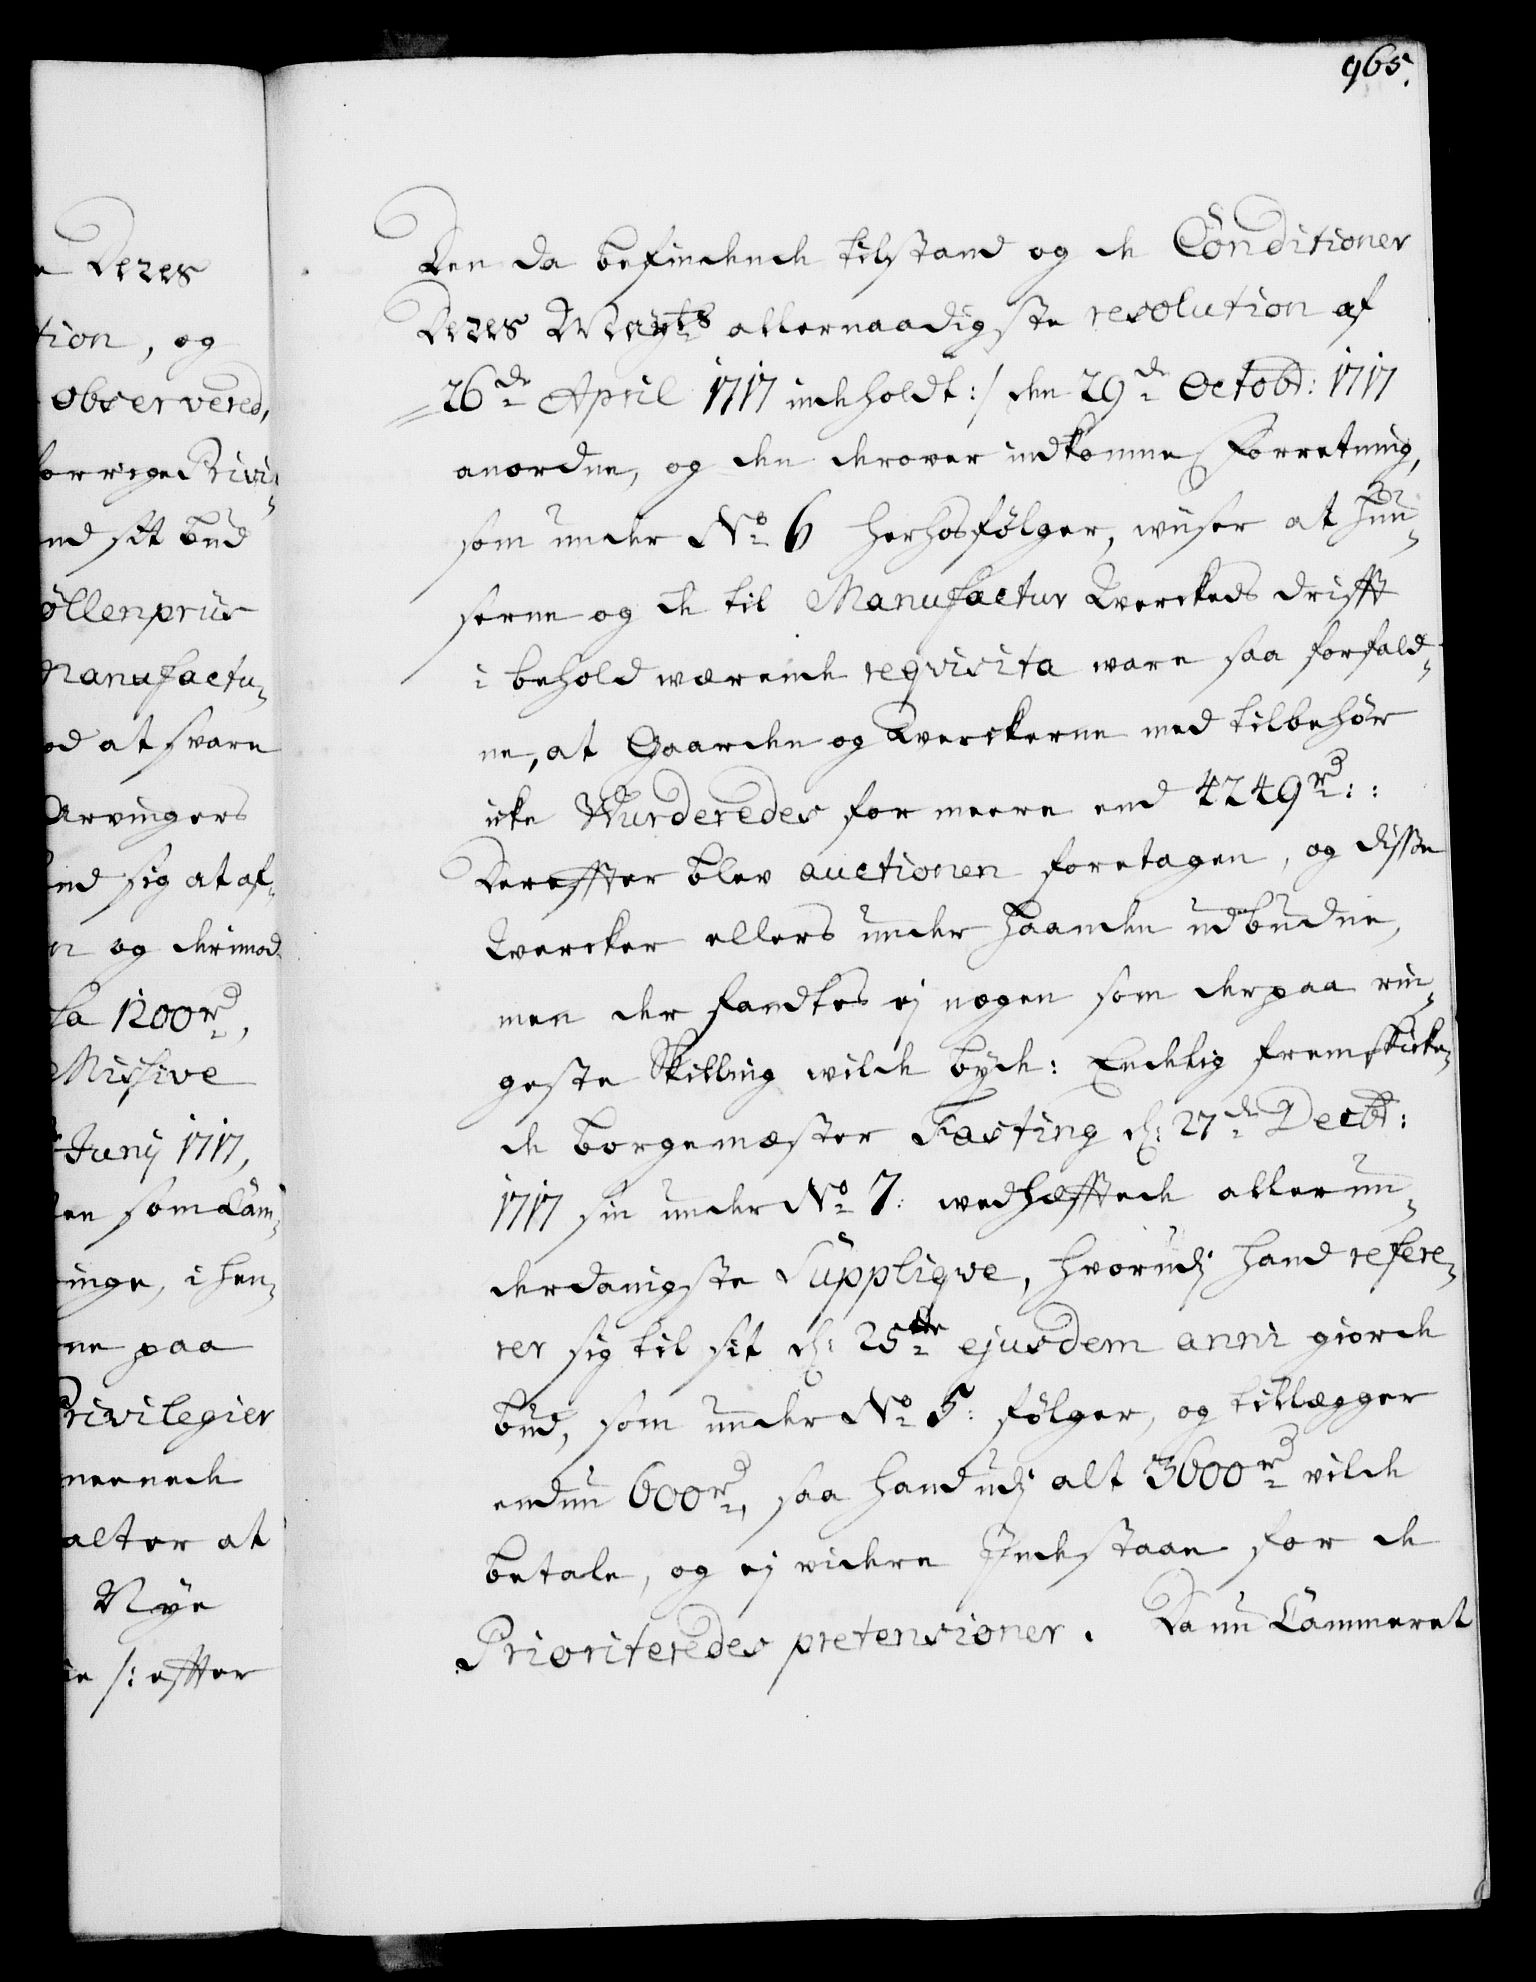 965.
e Deres
tion, og
observered,
forrige Privi-
nd sit bud
Møllenpriis
Manufactu-
od at svare
Arvingers
ind sig at af-
n og derimod
fra 1200 rd,
Missive
Junij 1717,
inge, i hen-
ne paa
Privilegier
meenede
alter at
Nye
ie /: effter
den da befindende tilstand og de Conditioner
Deres Mayts allernaadigste resolution af
26de April 1717 indeholdt :/ den 29de Octobr: 1717
anordne, og den derover indkomne Forretning,
som under No 6 herhosfølger, wiiser at Huu-
serne og de til Manufactur Werckeds drifft
i behold wærende reqvisita ware saa forfald-
ne, at Gaarden og Werckerne med tilbehør
icke Wurderedes for meere end 4249 rd::
Dereffter blev auctionen foretagen, og disse
Wercker ellers under haanden udbudne,
men der fandtes ej nogen som derpaa rin-
geste Skilling wilde byde: Endelig fremskicke-
de borgemæster Fasting d: 27de Decbr:
1717 sin under No 7: wedhæfftede allerun-
derdanigste Suppliqve, hvorudj hand refere-
rer sig til sit d: 25tte ejusdem anni giorde
bud, som under No 5: følger, og tillægger
endnu 600 rd, saa hand udj alt 3600 rd vilde
betale, og ej widere Indestaae for de
Prioriteredes pretensioner. Da nu Cammeret